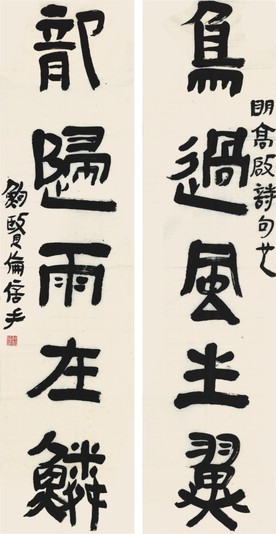 明高啟詩句也
鳥過風生翼
龍歸雨在鱗
鮑賢倫信手